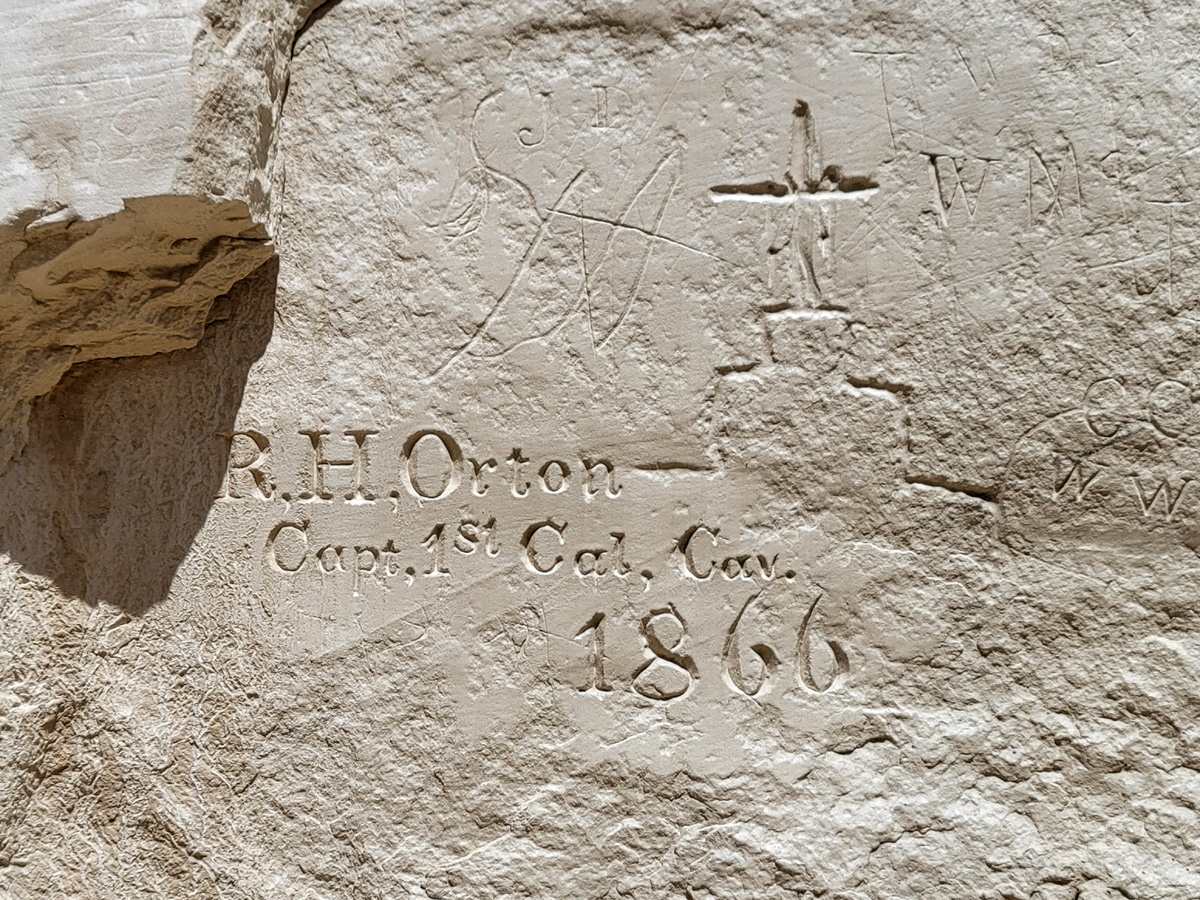 J D
T
W M
C C
W W
R.H.Orton
Capt.1st Cal, Cav.
1866